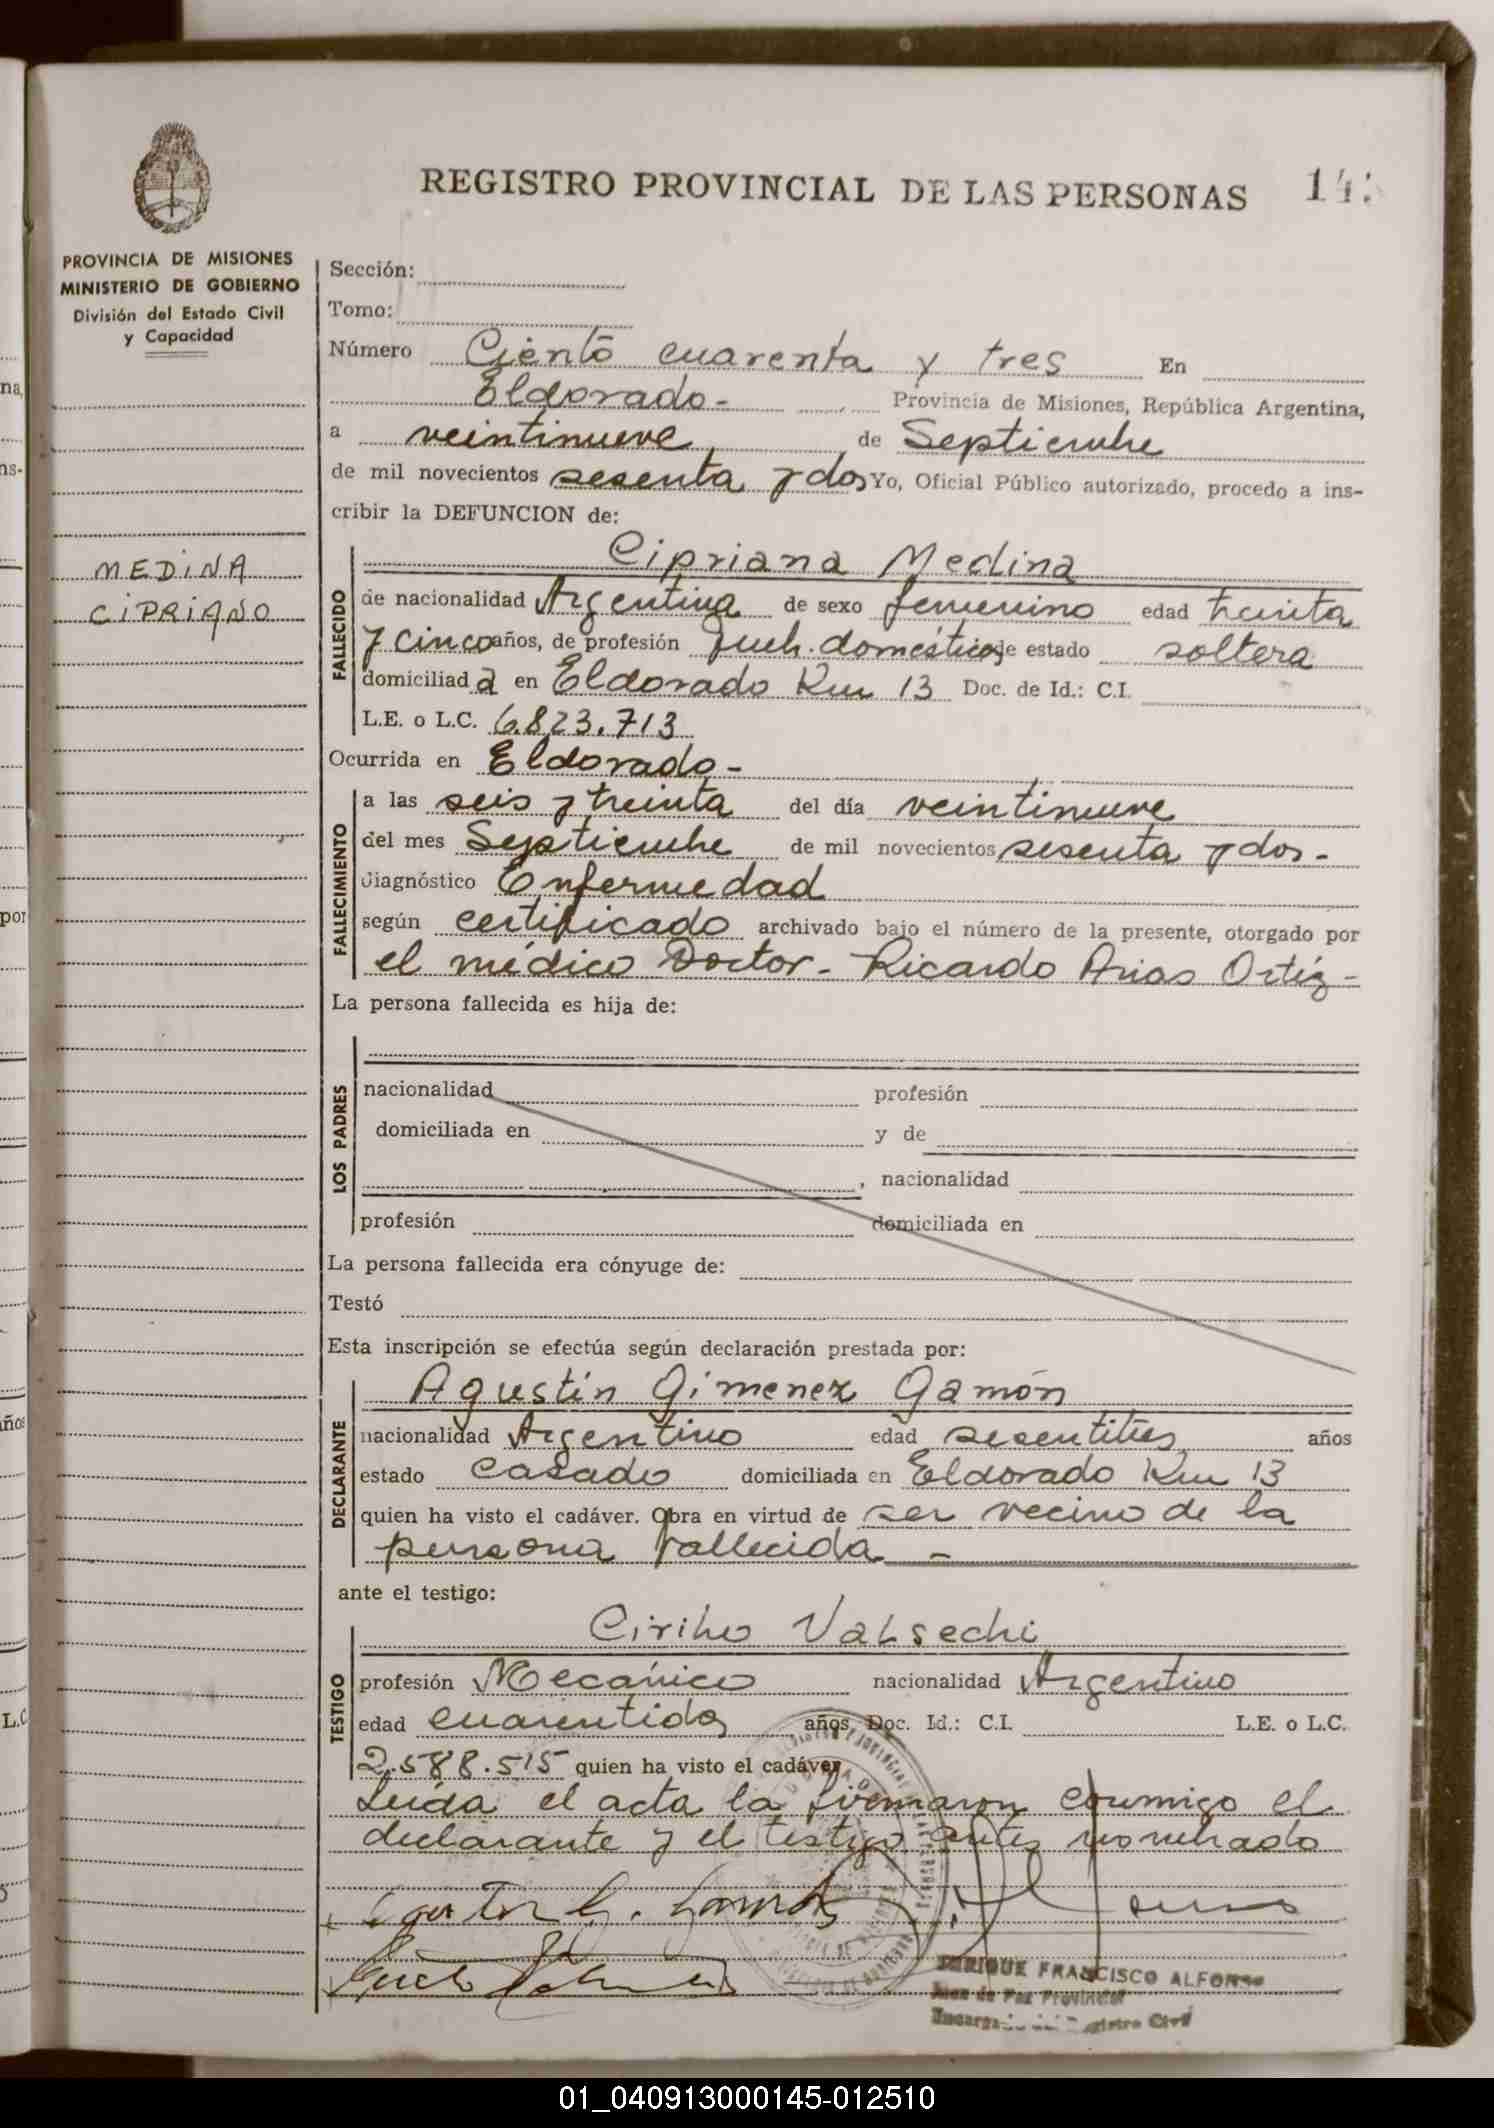 REGISTRO PROVINCIAL DE LAS PERSONAS
PROVINCIA DE MISIONES
MINISTERIO DE GOBIERNO
División del Estado Civil
y Capacidad
MEDINA
CIPRIANO
Sección:
Tomo:
Número Ciento cuarenta y tres En
Eldorado - Provincia de Misiones, República Argentina,
a veintinueve de Septiembre
de mil novecientos sesenta y dos Yo, Oficial Público autorizado, procedo a ins-
cribir la DEFUNCION de:
Cipriana Medina
FALLECIDO
de nacionalidad Argentina de sexo femenino edad treinta
y cinco años, de profesión Queh. domésticos de estado soltera
domiciliada en Eldorado Km 13 Doc. de Id.: C.I.
L.E. o L.C. 6.823.713
Ocurrida en Eldorado -
FALLECIMIENTO
a las seis y treinta del día veintinueve
del mes Septiembre de mil novecientos sesenta y dos -
diagnóstico Enfermedad
según certificado archivado bajo el número de la presente, otorgado por
el médico Doctor - Ricardo Arias Ortíz -
La persona fallecida es hija de:
LOS PADRES
nacionalidad profesión
domiciliada en y de
, nacionalidad
profesión domiciliada en
La persona fallecida era cónyuge de:
Testó
Esta inscripción se efectúa según declaración prestada por:
DECLARANTE
Agustín Gimenez Gamón
nacionalidad Argentino edad sesentitres años
estado casado domiciliada en Eldorado Km 13
quien ha visto el cadáver. Obra en virtud de ser vecino de la
persona fallecida -
ante el testigo:
TESTIGO
Cirilo Valsechi
profesión Mecánico nacionalidad Argentino
edad cuarentidos años, Doc. Id.: C.I. L.E. o L.C.
2.588.515 quien ha visto el cadáver
Leída el acta la firmaron conmigo el
declarante y el testigo antes nombrado
ENRIQUE FRANCISCO ALFONSO
Juez de Paz Provincial
01_040913000145-012510